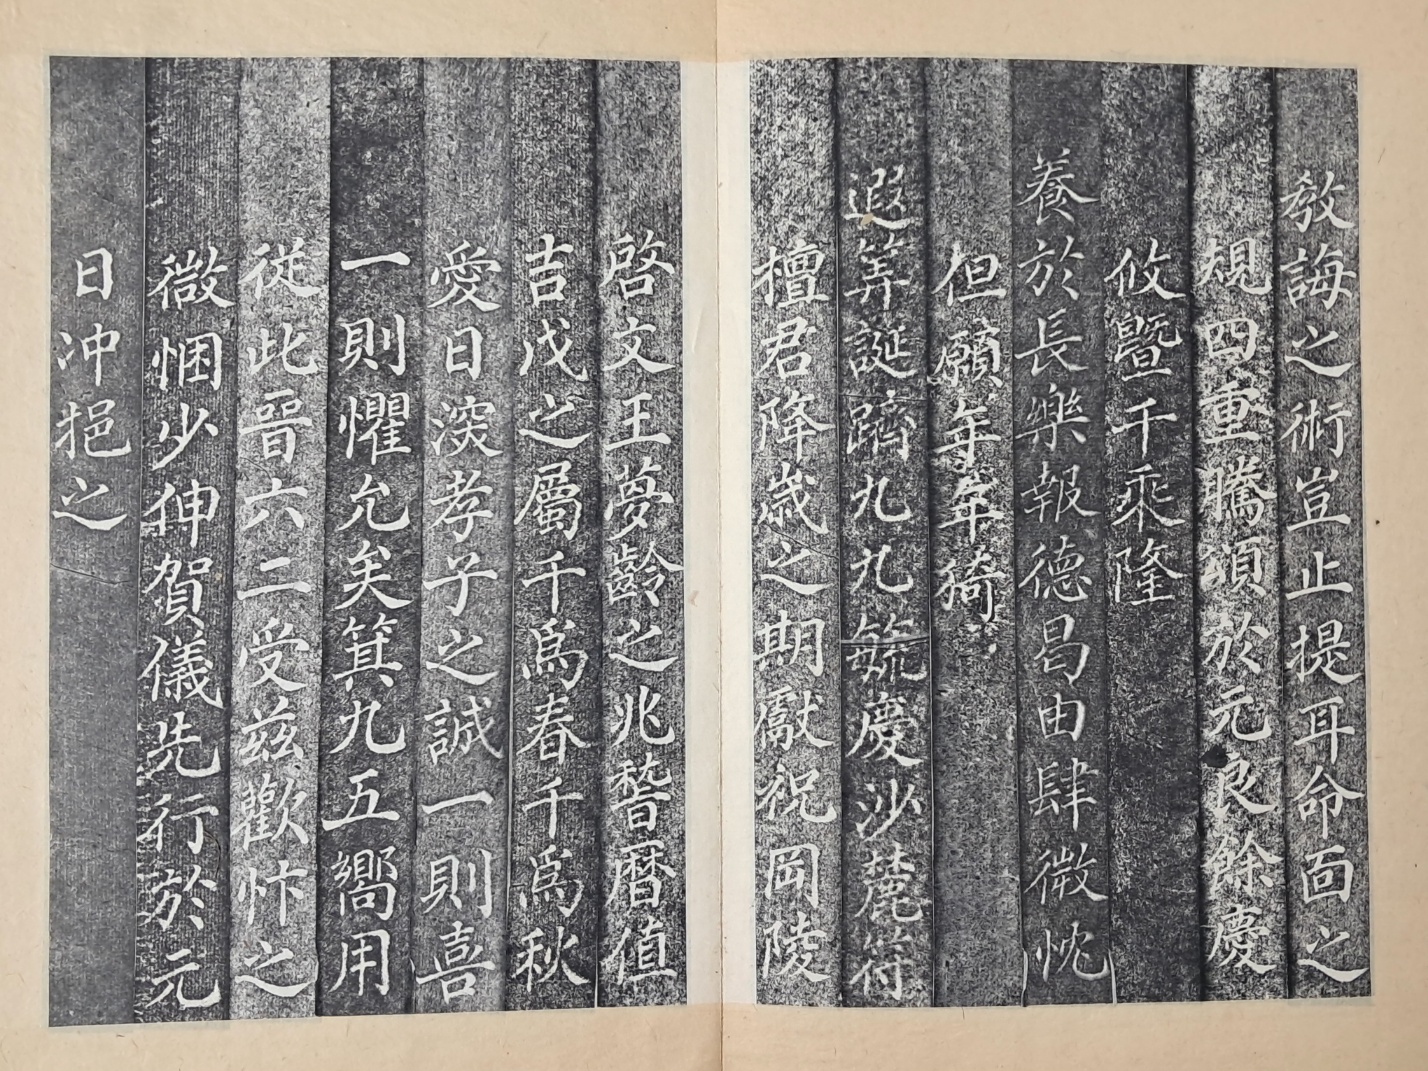 教誨之術豈止提耳命面之
規四重騰頌於元良餘慶
攸曁千乘隆
養於長樂報德曷由肆微忱
但願年年綺
遐筭誕躋九九毓慶沙麓符
檀君降歲之期獻祝岡陵
啓文王夢齡之兆稽曆值
吉戊之屬千爲春千爲秋
愛日深孝子之誠一則喜
一則懼允矣箕九五嚮用
從此晉六二受兹歡忭之
微悃少伸賀儀先行於元
日冲挹之